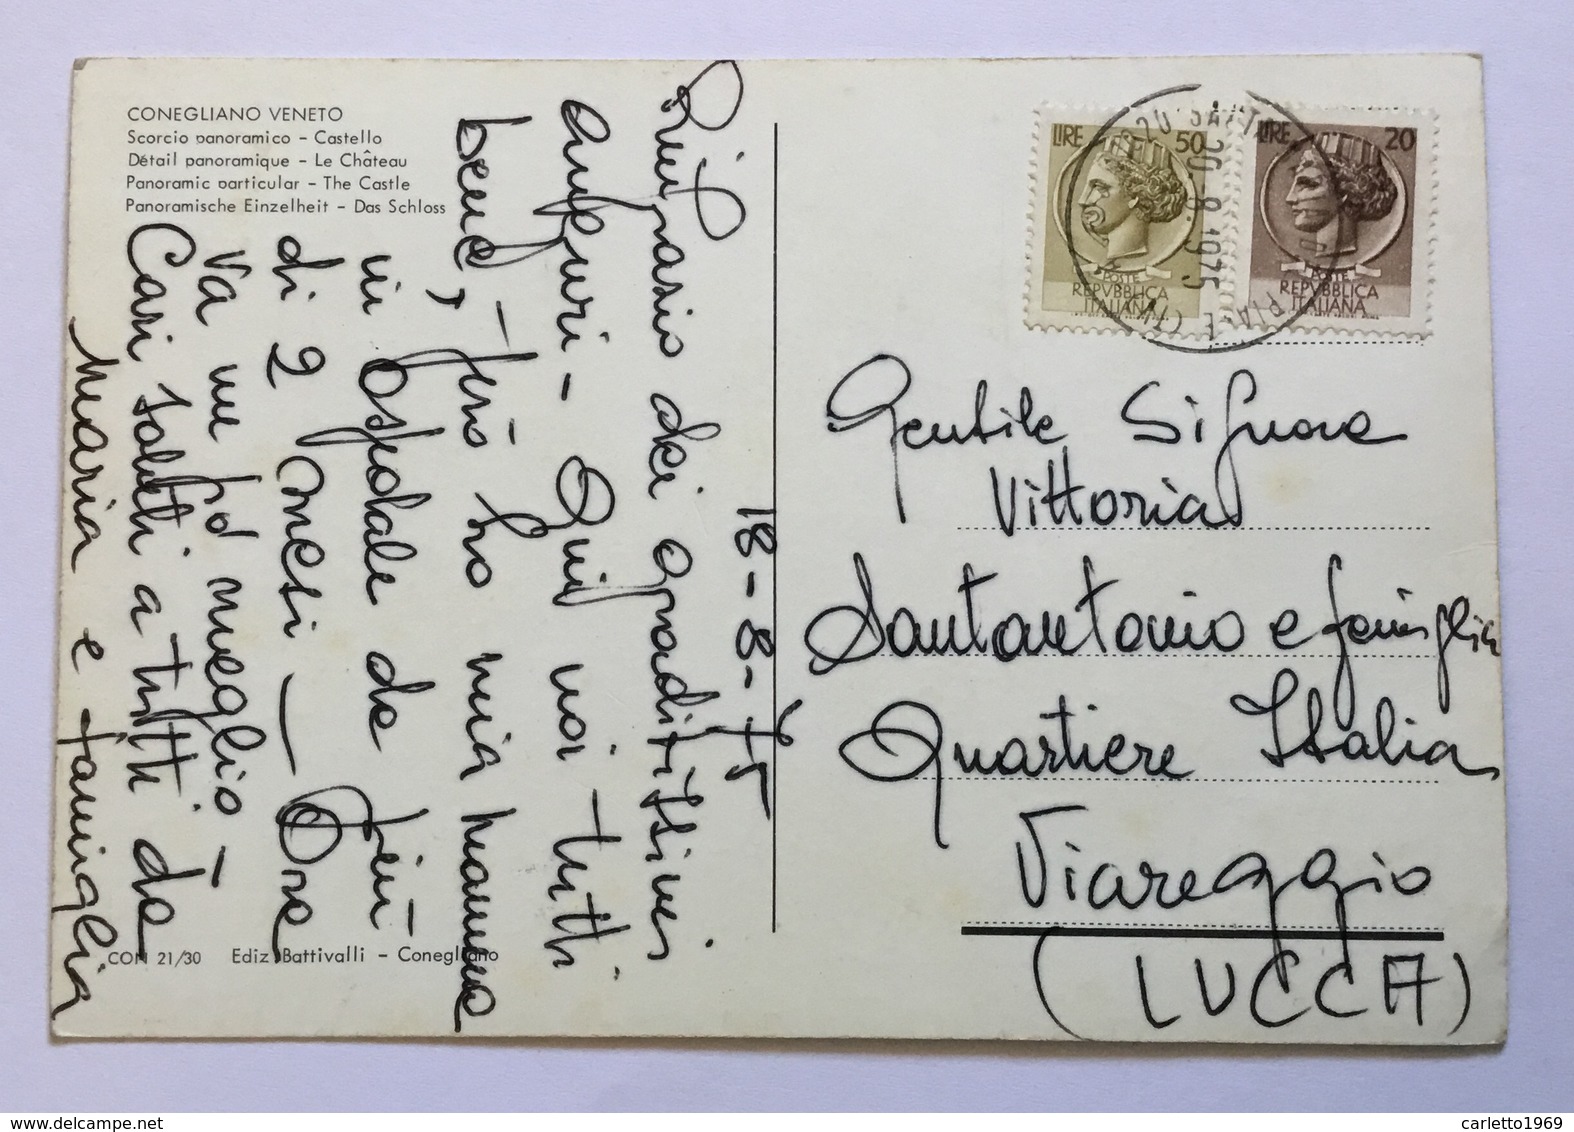 CONEGLIANO VENETO
Scorcio panoramico – Castello
Détail panoramique – Le Château
Panoramic particular – The Castle
Panoramische Einzelheit – Das Schloss
18-8-75
Ringrazio dei graditissimi
auguri - Qui noi tutti
bene, - però ho mia mamma
in ospedale da più
di 2 mesi — Ora
va un pó meglio -
Cari saluti a tutti da
Maria e famiglia
CON 21/30 Ediz. Battivalli – Conegliano
LIRE 50
POSTE
REPVBBLICA
ITALIANA
LIRE 20
POSTE
REPVBBLICA
ITALIANA
20.8.1975
Gentile Signora
Vittoria
Santantonio e famiglia
Quartiere Italia
Viareggio
(LUCCA)
carletto1969